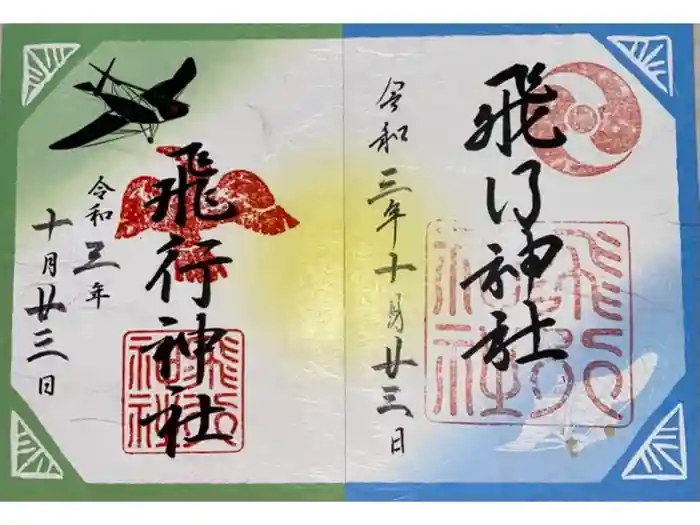 飛行神社
令和三年十月廿三日
飛行神社
飛行神社
令和三年
十月廿三日
飛行神社